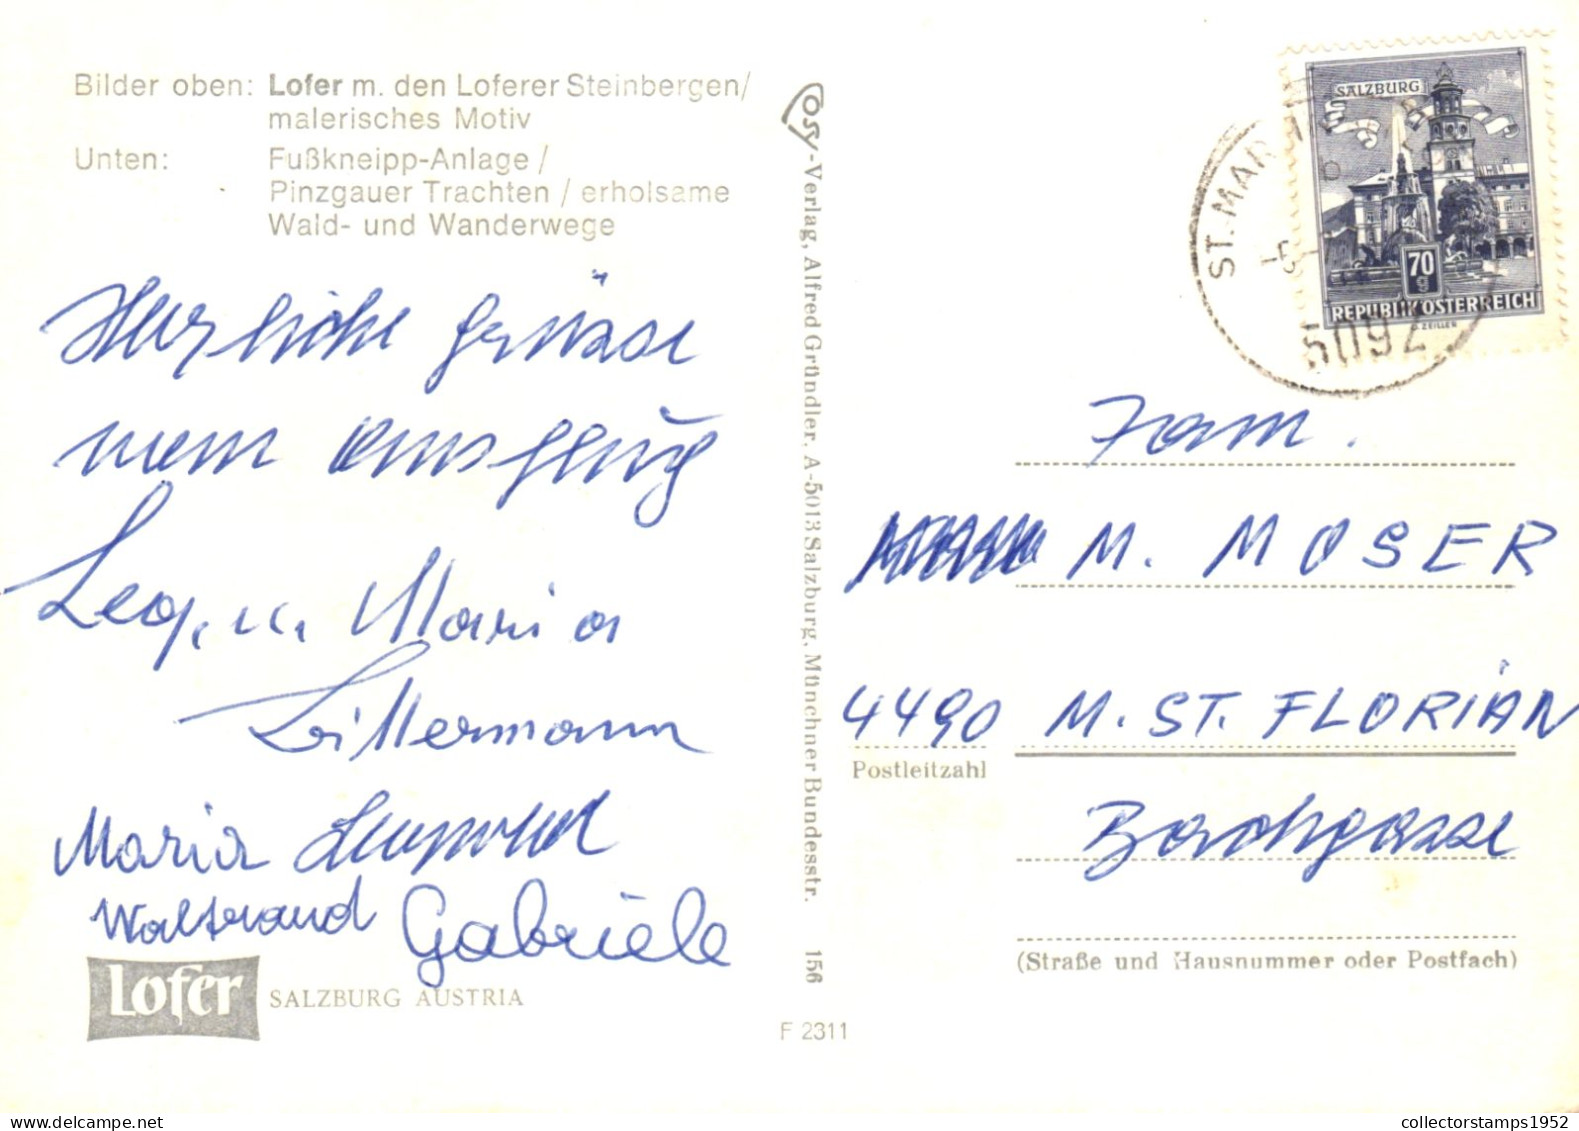 Bilder oben: Lofer m. den Loferer Steinbergen/
malerisches Motiv
Unten: Fußkneipp-Anlage /
Pinzgauer Trachten / erholsame
Wald- und Wanderwege
Herzliche Grüsse
vom Ausflug
Leop. u. Maria
Maria
Waltraud Gabriele
Lofer SALZBURG AUSTRIA
Cosy-Verlag, Alfred Gründler, A-5013 Salzburg, Münchner Bundesstr. 156
F 2311
SALZBURG
70
g
REPUBLIK ÖSTERREICH
O. ZEILLER
ST. MAR
5092
Fam.
M. MOSER
4490 M. ST. FLORIAN
Postleitzahl
Bachgasse
(Straße und Hausnummer oder Postfach)
collectorstamps1952